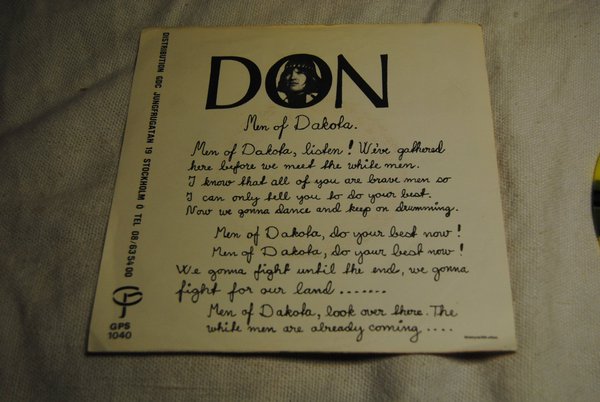 DON
Men of Dakota.
Men of Dakota, listen! We've gathered
here before we meet the white men.
I know that all of you are brave men so
I can only tell you to do your best.
Now we gonna dance and keep on drumming.
Men of Dakota, do your best now!
Men of Dakota, do your best now!
We gonna fight until the end, we gonna
fight for our land .......
Men of Dakota, look over there. The
white men are already coming ....
DISTRIBUTION GDC JUNGFRUGATAN 19 STOCKHOLM Ö TEL 08/63 54 00
GPS
1040